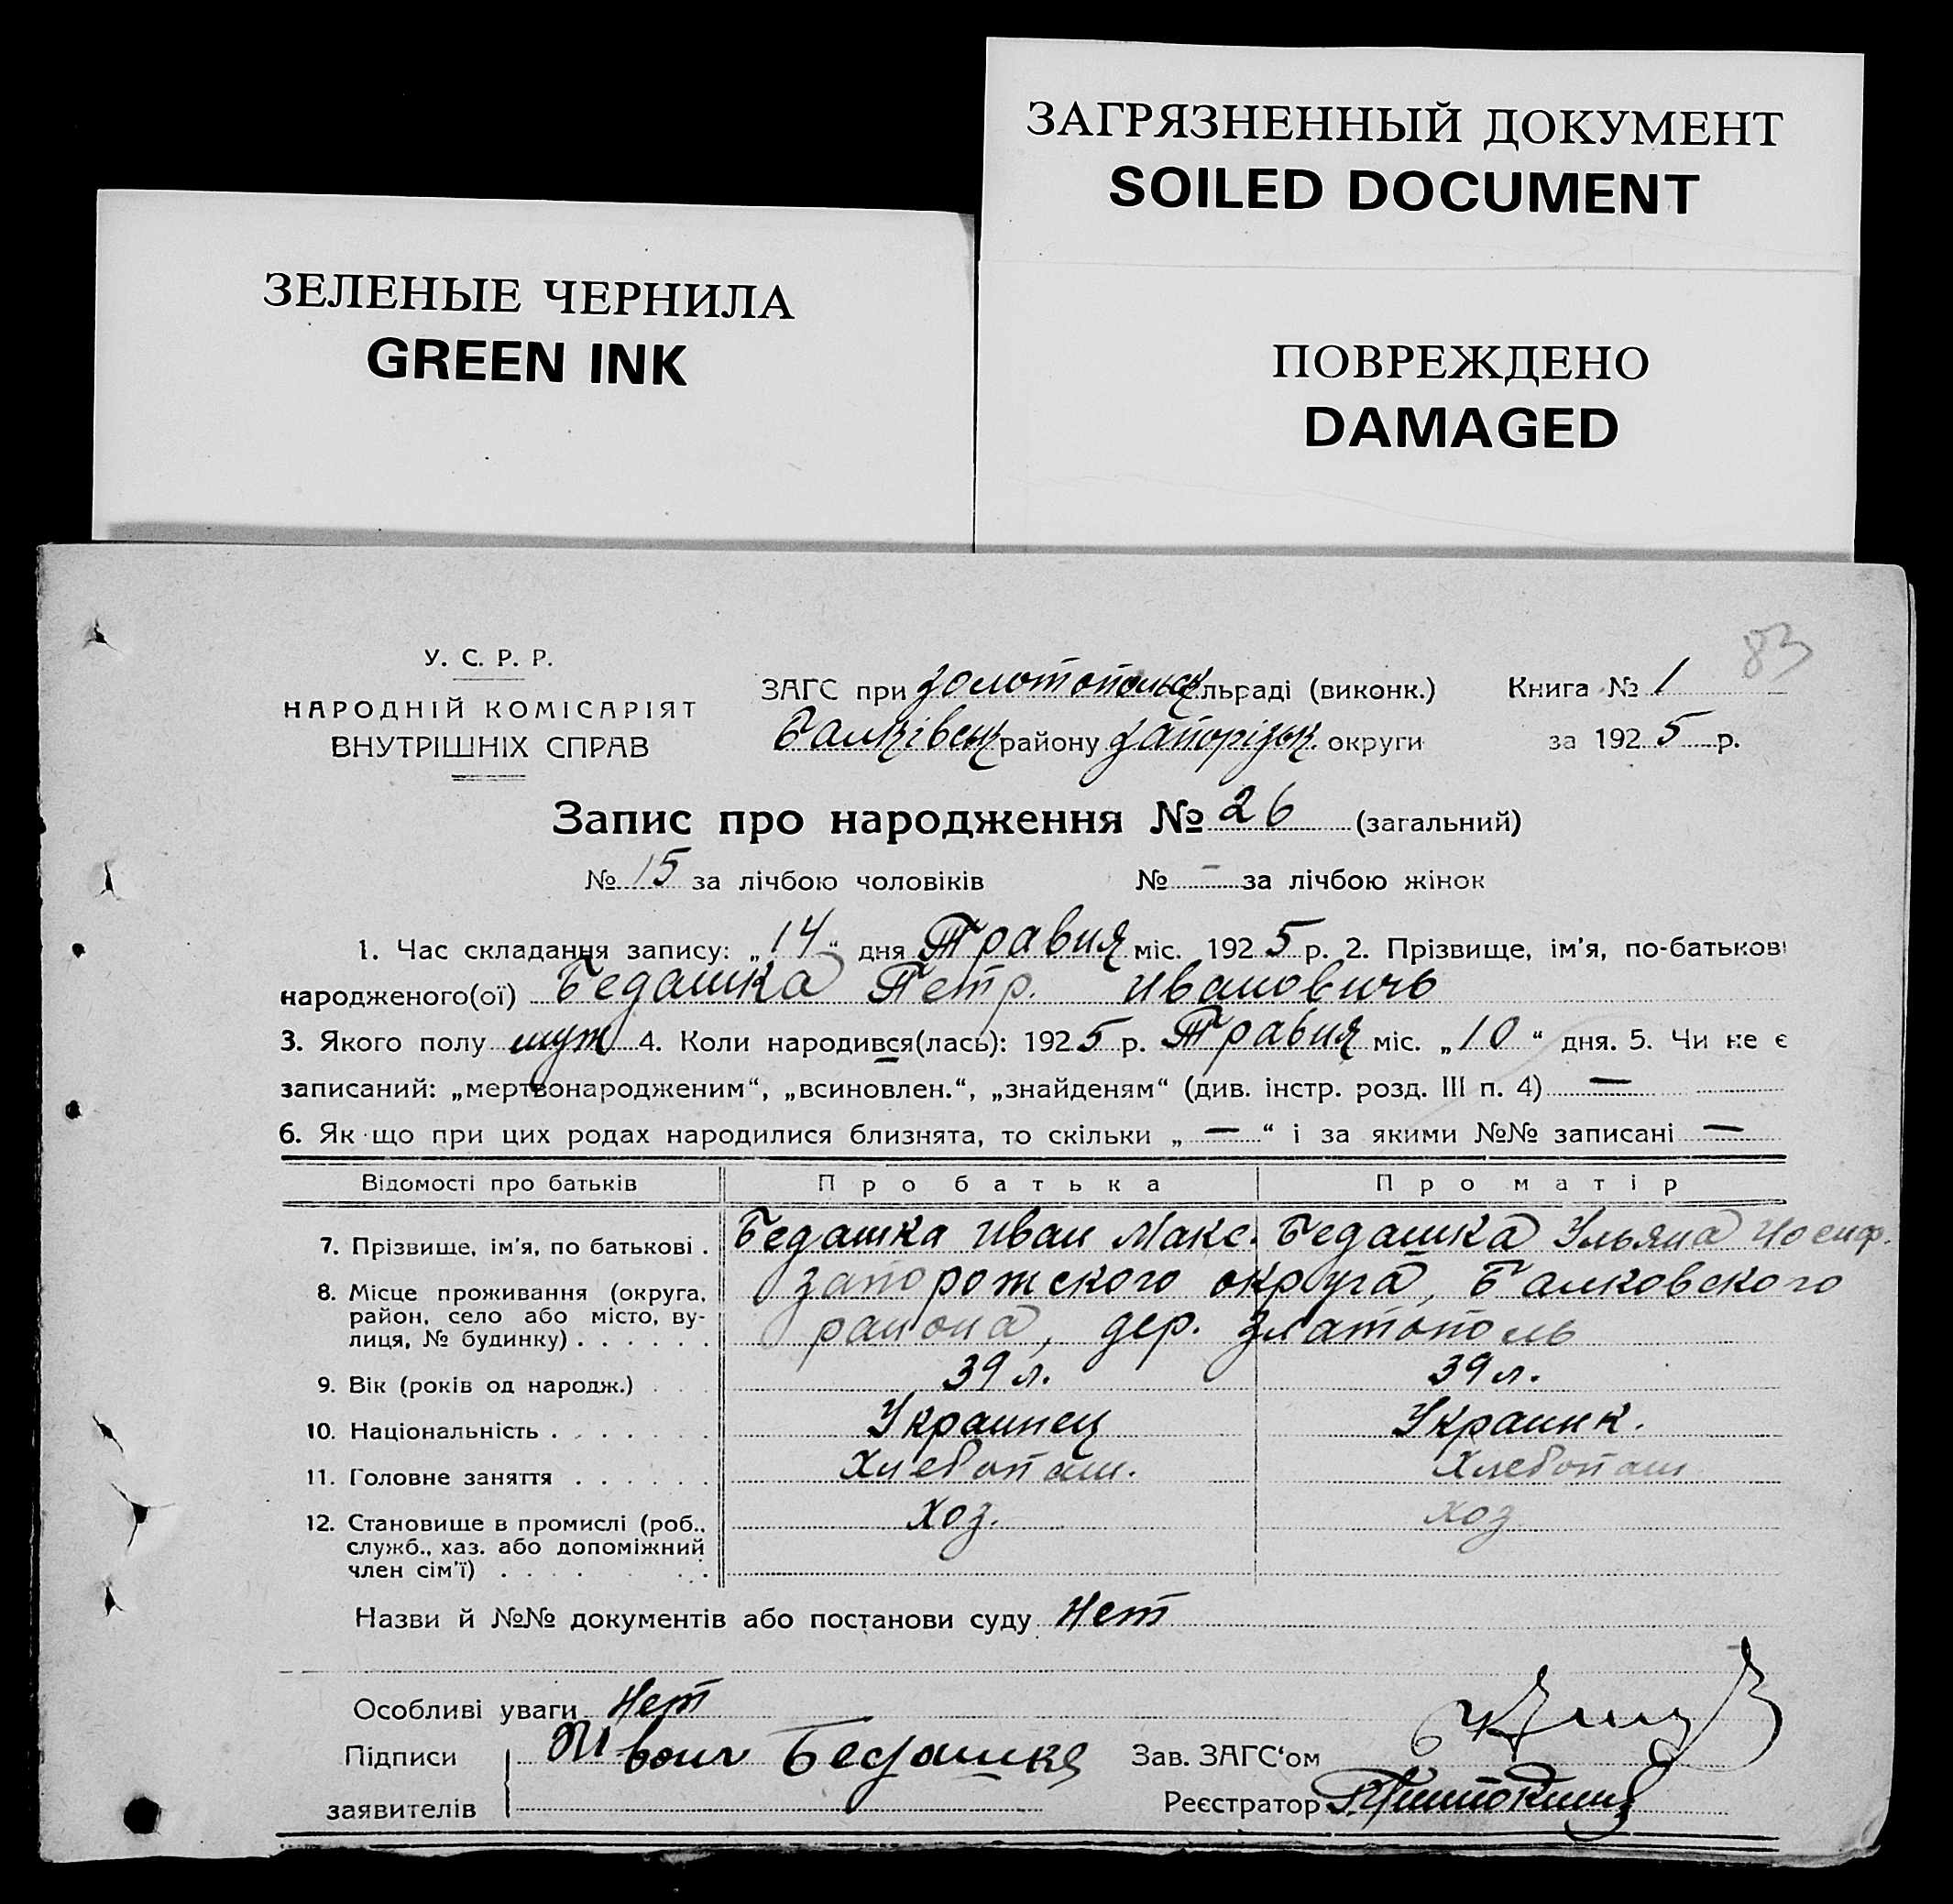 ЗАГРЯЗНЕННЫЙ ДОКУМЕНТ
SOILED DOCUMENT
ЗЕЛЕНЫЕ ЧЕРНИЛА
GREEN INK
ПОВРЕЖДЕНО
DAMAGED
83
У. С. Р. Р.
НАРОДНІЙ КОМІСАРІЯТ
ВНУТРІШНІХ СПРАВ
ЗАГС при Золотопольськ сільраді (виконк.) Книга № 1
Балківськ району Запорізьк. округи за 1925 р.
Запис про народження № 26 (загальний)
№ 15 за лічбою чоловіків № - за лічбою жінок
1. Час складання запису: „14“ дня Травня міс. 1925 р. 2. Прізвище, ім’я, по-батькові
народженого(ої) Бедашка Петр. Ивановичь
3. Якого полу муж 4. Коли народився(лась): 1925 р. Травня міс. „10“ дня. 5. Чи не є
записаний: „мертвонародженим“, „всиновлен.“, „знайденям“ (див. інстр. розд. III п. 4) —
6. Як що при цих родах народилися близнята, то скільки „—“ і за якими №№ записані —
Відомості про батьків Про батька Про матір
7. Прізвище, ім’я, по батькові . Бедашка Иван Макс. Бедашка Ульяна Иосиф.
8. Місце проживання (округа, район, село або місто, вулиця, № будинку) . . . . . . Запорожского округа, Балковского
района, дер. Златополь
9. Вік (років од народж.) . . . 39 л. 39 л.
10. Національність . . . . . . . Украинец Украинк.
11. Головне заняття . . . . . . Хлебопаш. Хлебопаш
12. Становище в промислі (роб., служб., хаз. або допоміжний член сім’ї) . . . . Хоз. Хоз
Назви й №№ документів або постанови суду Нет
Особливі уваги Нет
Підписи Иван Бедашка Зав. ЗАГС‘ом
заявителів Реєстратор